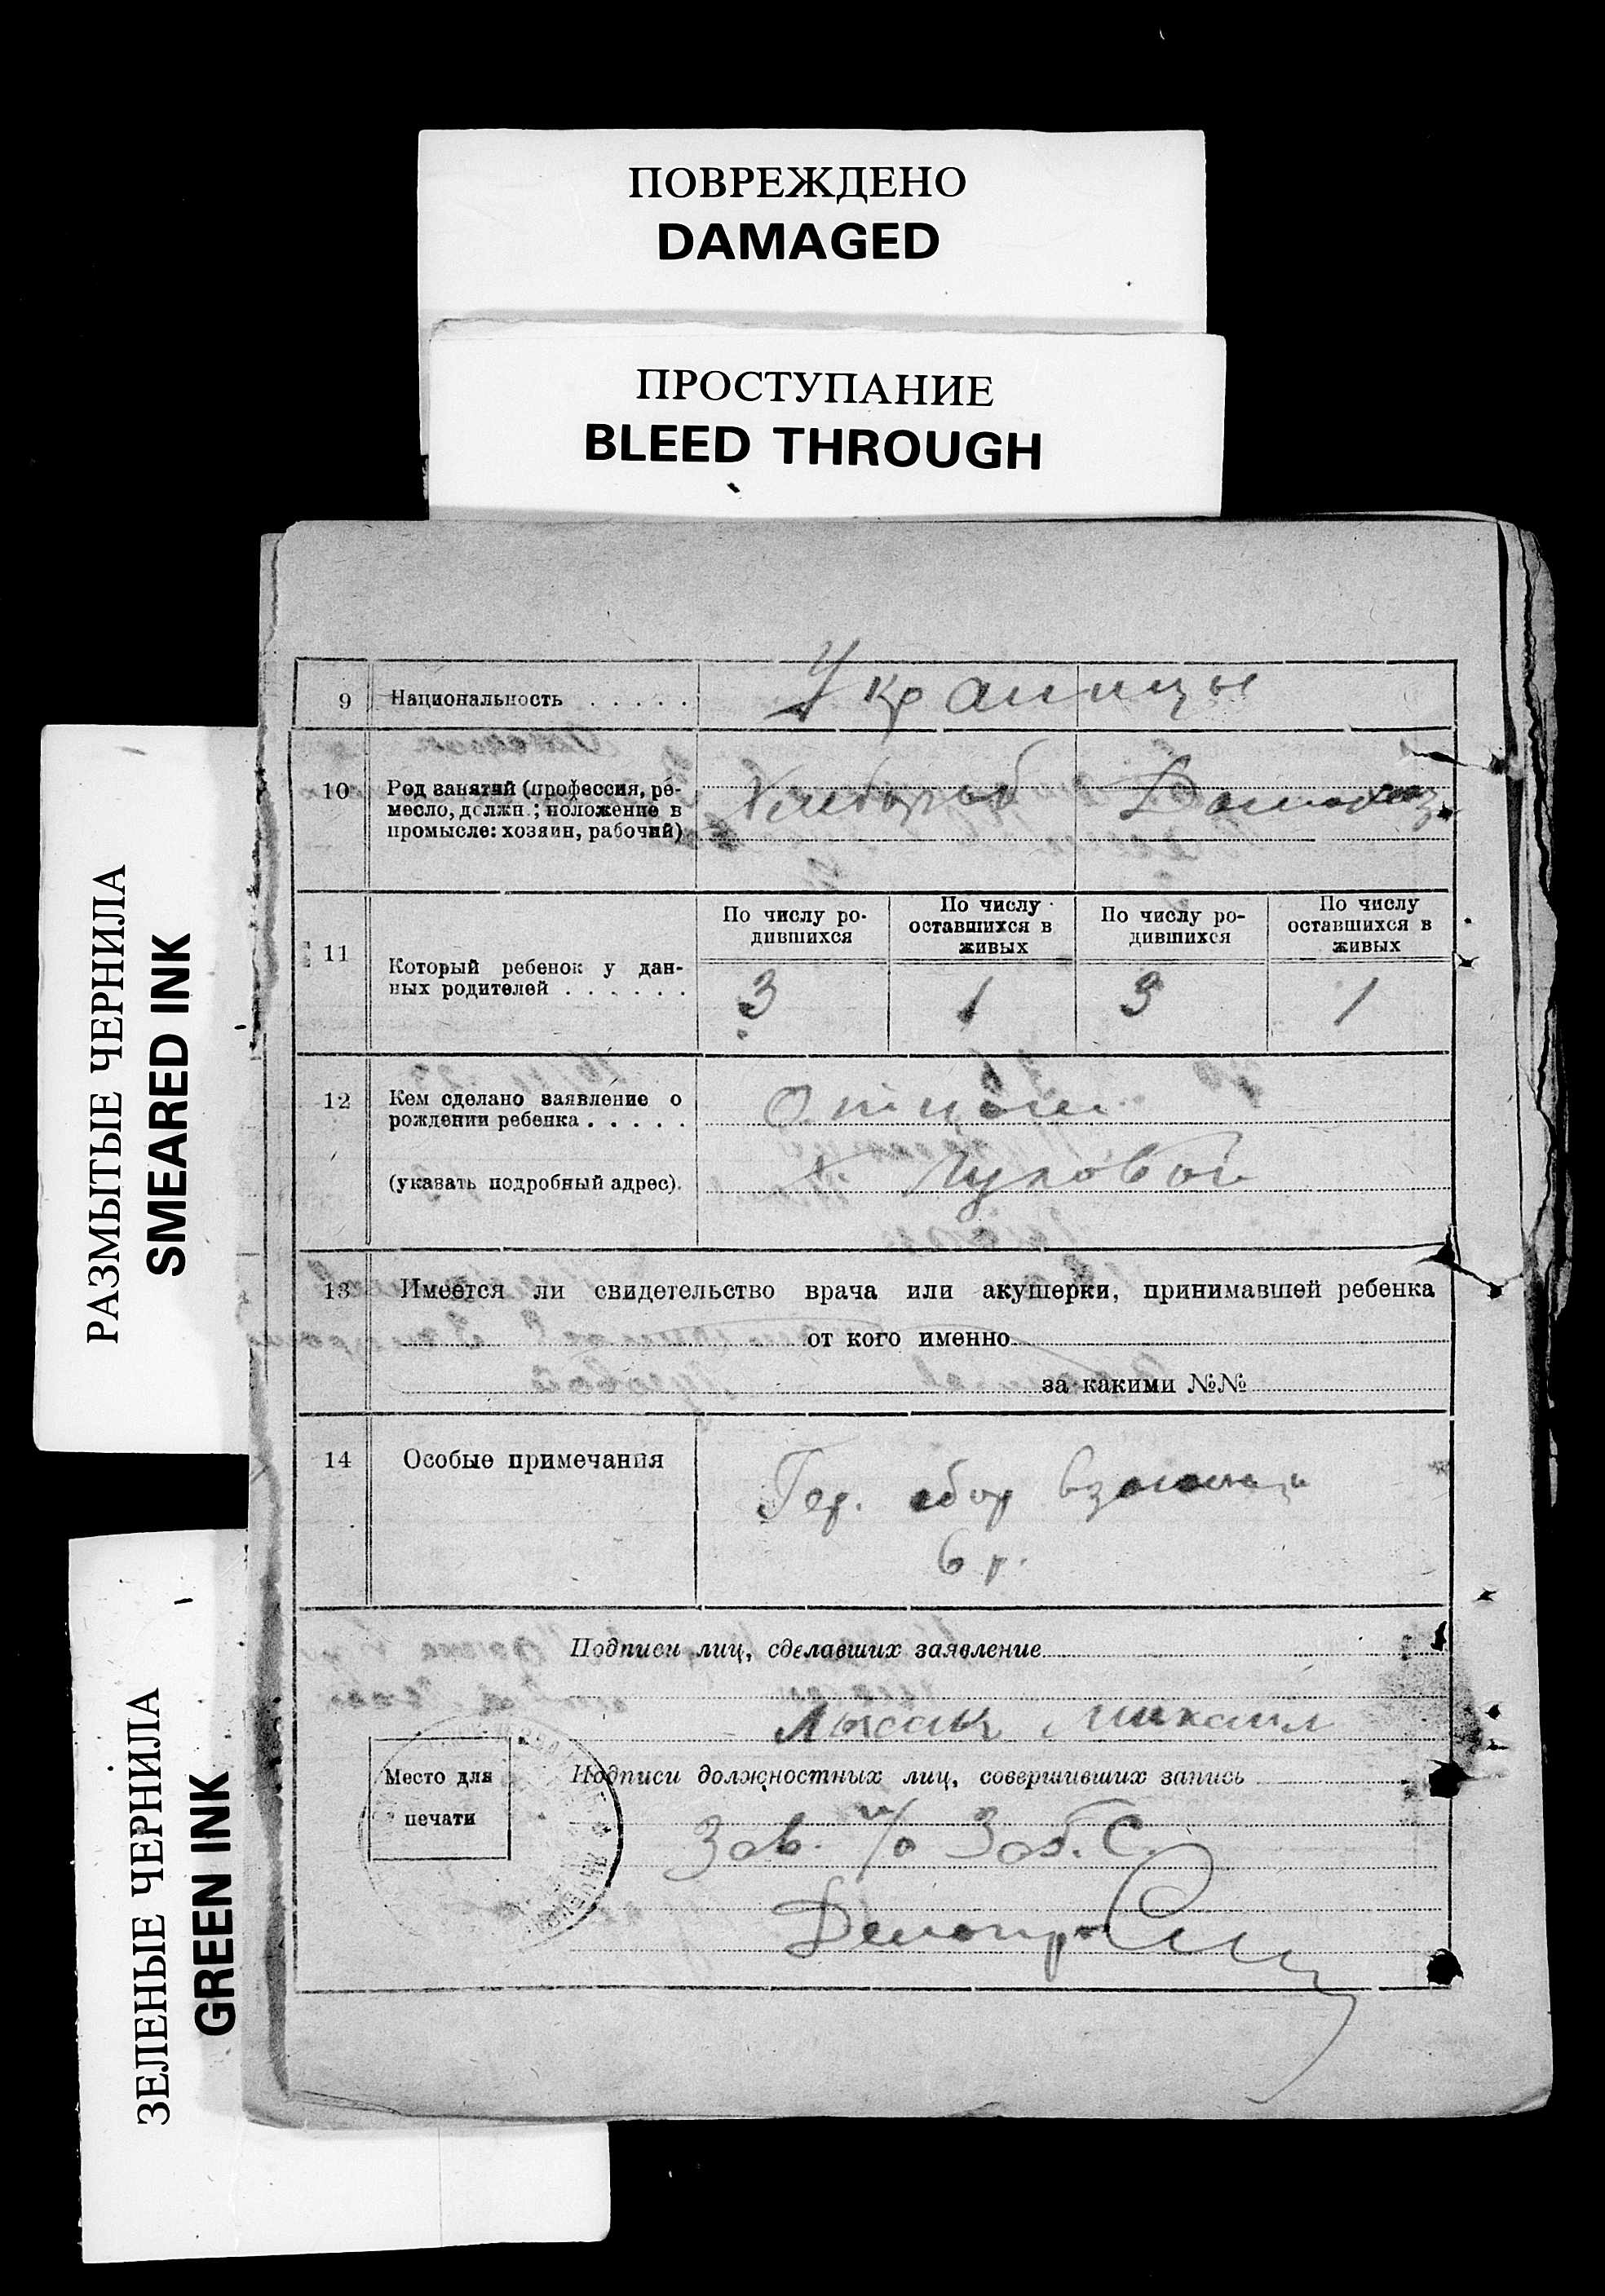 ПОВРЕЖДЕНО
DAMAGED
ПРОСТУПАНИЕ
BLEED THROUGH
РАЗМЫТЫЕ ЧЕРНИЛА
SMEARED INK
ЗЕЛЕНЫЕ ЧЕРНИЛА
GREEN INK
9 Национальность . . . . . Украинцы
10 Род занятий (профессия, ре-
месло, должн.; положение в
промысле: хозяин, рабочий)
Хлебороб Домохоз
11 Который ребенок у дан-
ных родителей . . . . . .
По числу ро-
дившихся
По числу
оставшихся в
живых
По числу ро-
дившихся
По числу
оставшихся в
живых
3 1 3 1
12 Кем сделано заявление о
рождении ребенка . . . . .
Отцом
(указать подробный адрес).
х Луковой
13 Имеется ли свидетельство врача или акушерки, принимавшей ребенка
от кого именно
за какими №№
14 Особые примечания
Гер. сбор
6 р.
Подписи лиц, сделавших заявление
Лысак Михаил
Место для
печати
Подписи должностных лиц, совершивших запись
Зав. п/о Заг. С.